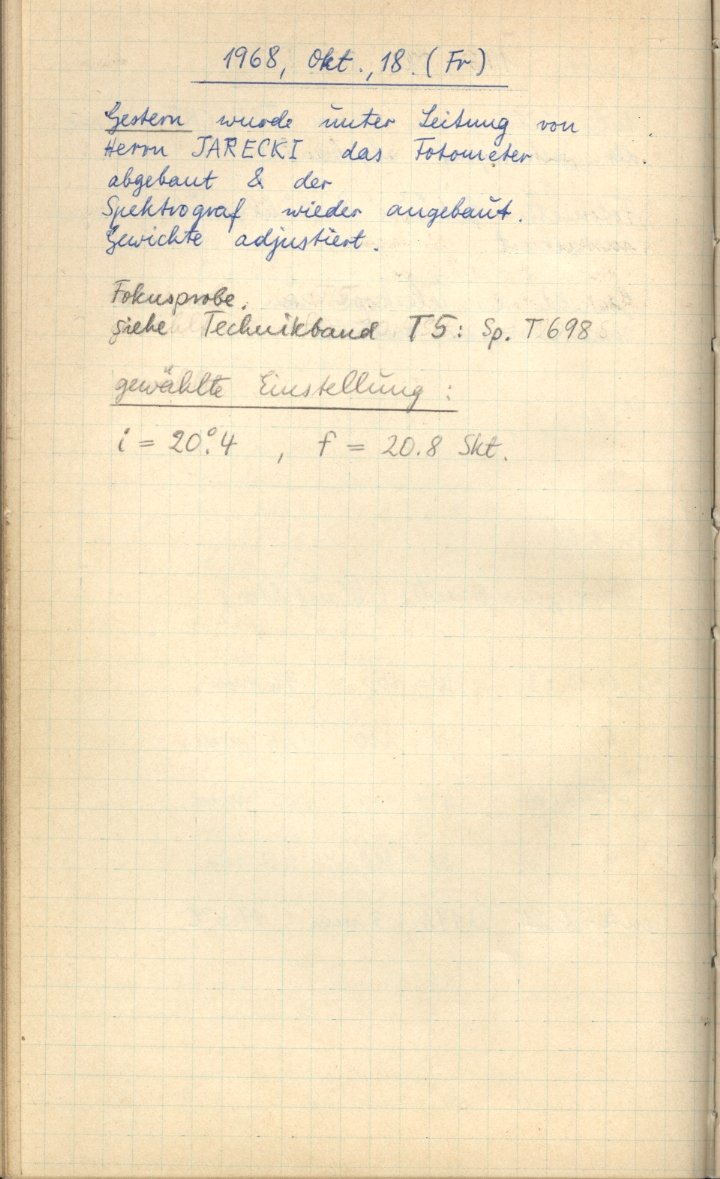 1968, Okt., 18. (Fr)
Gestern wurde unter Leitung von
Herrn JARECKI das Fotometer
abgebaut & der
Spektrograf wieder angebaut.
Gewichte adjustiert.
Fokusprobe.
siehe Technikband T5: Sp. T698
gewählte Einstellung:
i = 20°.4 , f = 20.8 Skt.